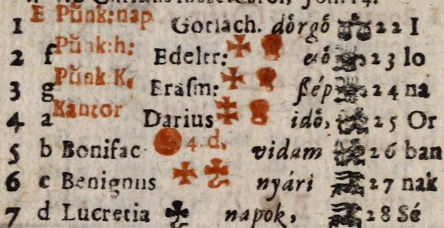 1 E Púnk:nap Gotlach. dörgő 22 I
2 f Púnk:h: Edeltr: eső 23 lo
3 g Púnk.K. Erasm: ſzép 24 na
4 a Kantor Darius idő, 25 Or
5 b Bonifac 4 d, vidam 26 ban
6 c Benignus nyári 27 nak
7 d Lucretia napok, 28 Sé